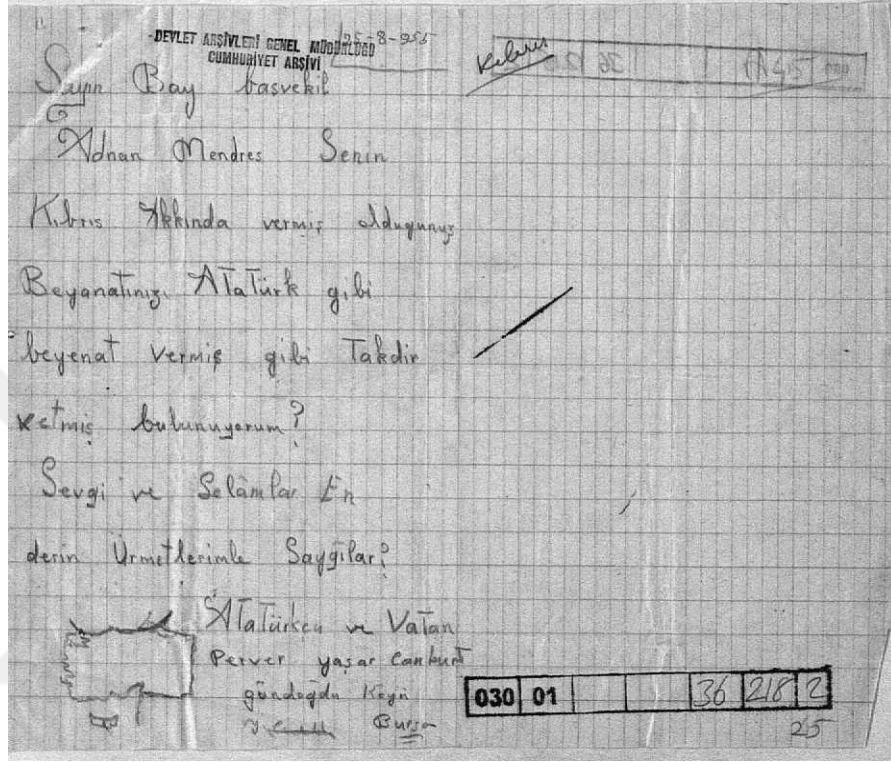 DEVLET ARŞİVLERİ GENEL MÜDÜRLÜĞÜ
CUMHURİYET ARŞİVİ
25-8-955
Kıbrıs
Sayın Bay başvekil
Adnan Mendres Senin
Kıbrıs Akkında vermiş olduğunuz
Beyanatınızı ATaTürk gibi
beyenat vermiş gibi Takdir
ketmiş bulunuyorum?
Sevgi ve Selâmlar En
derin Ürmetlerimle Saygılar?
ATaTürkcu ve VaTan
Perver yaşar Canburt
gündoğdu Köyü
Bursa
030 01 36 218 2
25